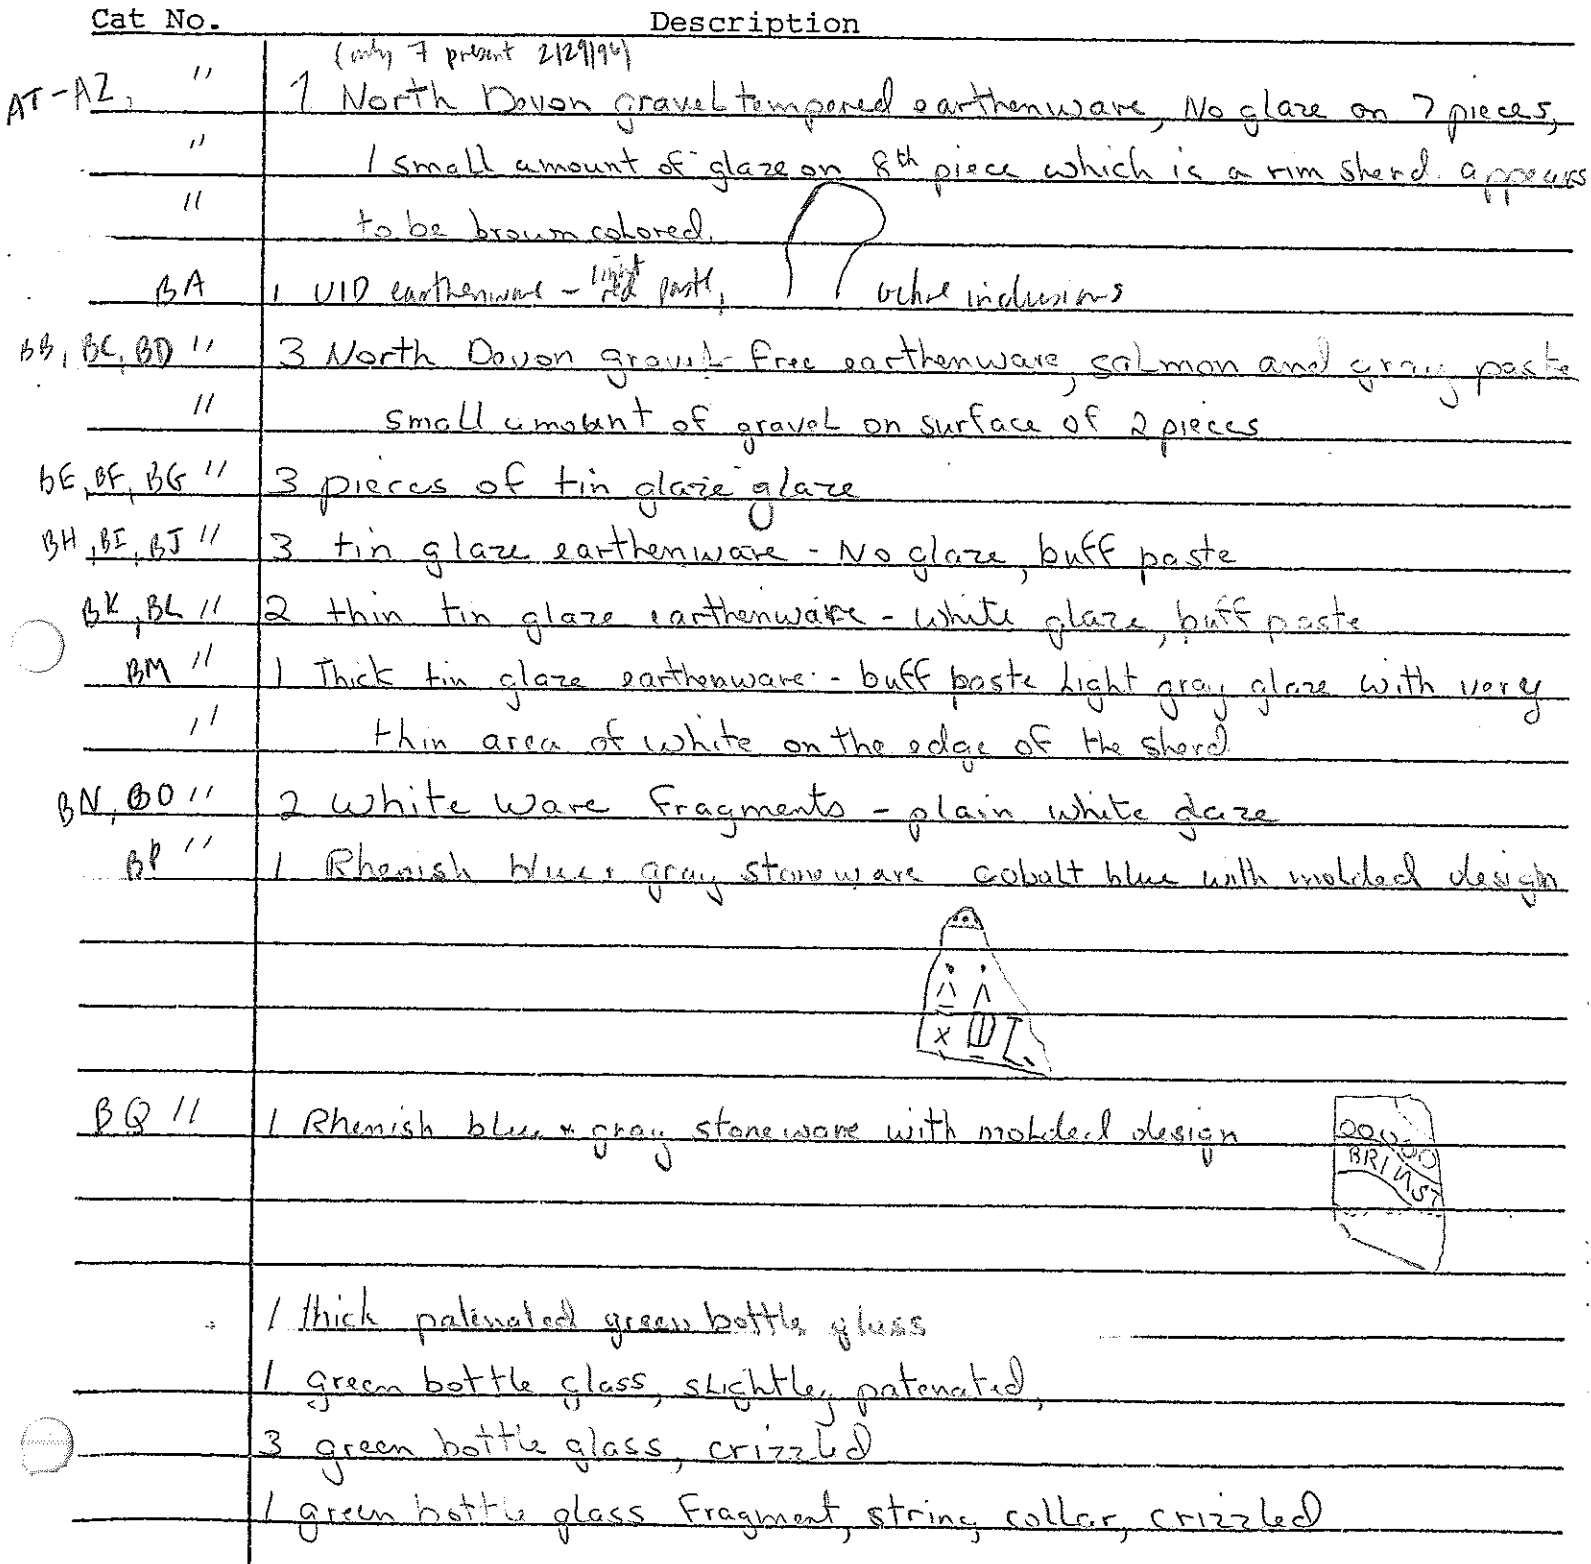 Cat No. Description
(only 7 present 2/29/96)
AT-AZ, " 7 North Devon gravel tempered earthenware, No glaze on 7 pieces,
" 1 small amount of glaze on 8th piece which is a rim sherd. appears
" to be brown colored.
BA 1 UID earthenware - light red paste, ochre inclusions
BB, BC, BD " 3 North Devon gravel free earthenware, salmon and gray paste
" small amount of gravel on surface of 2 pieces
BE, BF, BG " 3 pieces of tin glaze glaze
BH, BI, BJ " 3 tin glaze earthenware - No glaze, buff paste
BK, BL " 2 thin tin glaze earthenware - white glaze, buff paste
BM " 1 Thick tin glaze earthenware - buff paste Light gray glaze with very
" thin area of white on the edge of the sherd
BN, BO " 2 White Ware Fragments - plain white glaze
BP " 1 Rhenish blue + gray stoneware cobalt blue with molded design
BQ " 1 Rhenish blue + gray stoneware with molded design
BRINST
1 thick patenated green bottle glass
1 green bottle glass, slightley patenated,
3 green bottle glass, crizzled
1 green bottle glass Fragment, string collar, crizzled